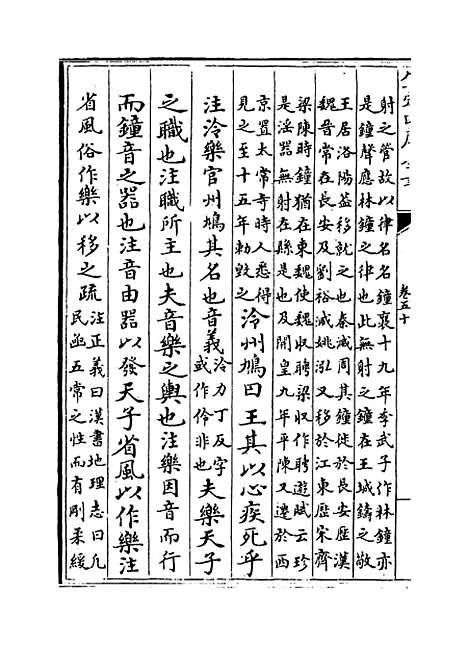 射之管故以律名名鐘襄十九年季武子作林鐘亦
是鐘聲應林鐘之律也此無射之鐘在王城鑄之敬
王居洛陽葢移就之也秦滅周其鐘徙於長安歷漢
魏晉常在長安及劉裕滅姚泓又移於江東歷宋齊
梁陳時鐘猶在東魏使魏収聘梁収作聘遊賦云珍
是淫器無射在縣是也及開皇九年平陳又遷於西
京置太常寺時人悉得
見之至十五年勅毀之
泠州鳩曰王其以心疾死乎
注泠樂官州鳩其名也音義
泠力丁反字
或作伶非也
夫樂天子
之職也注職所主也夫音樂之輿也注樂因音而行
而鐘音之器也注音由器以發天子省風以作樂注
省風俗作樂以移之疏
注正義曰漢書地理志曰凡
民函五常之性而有剛柔緩
卷五十